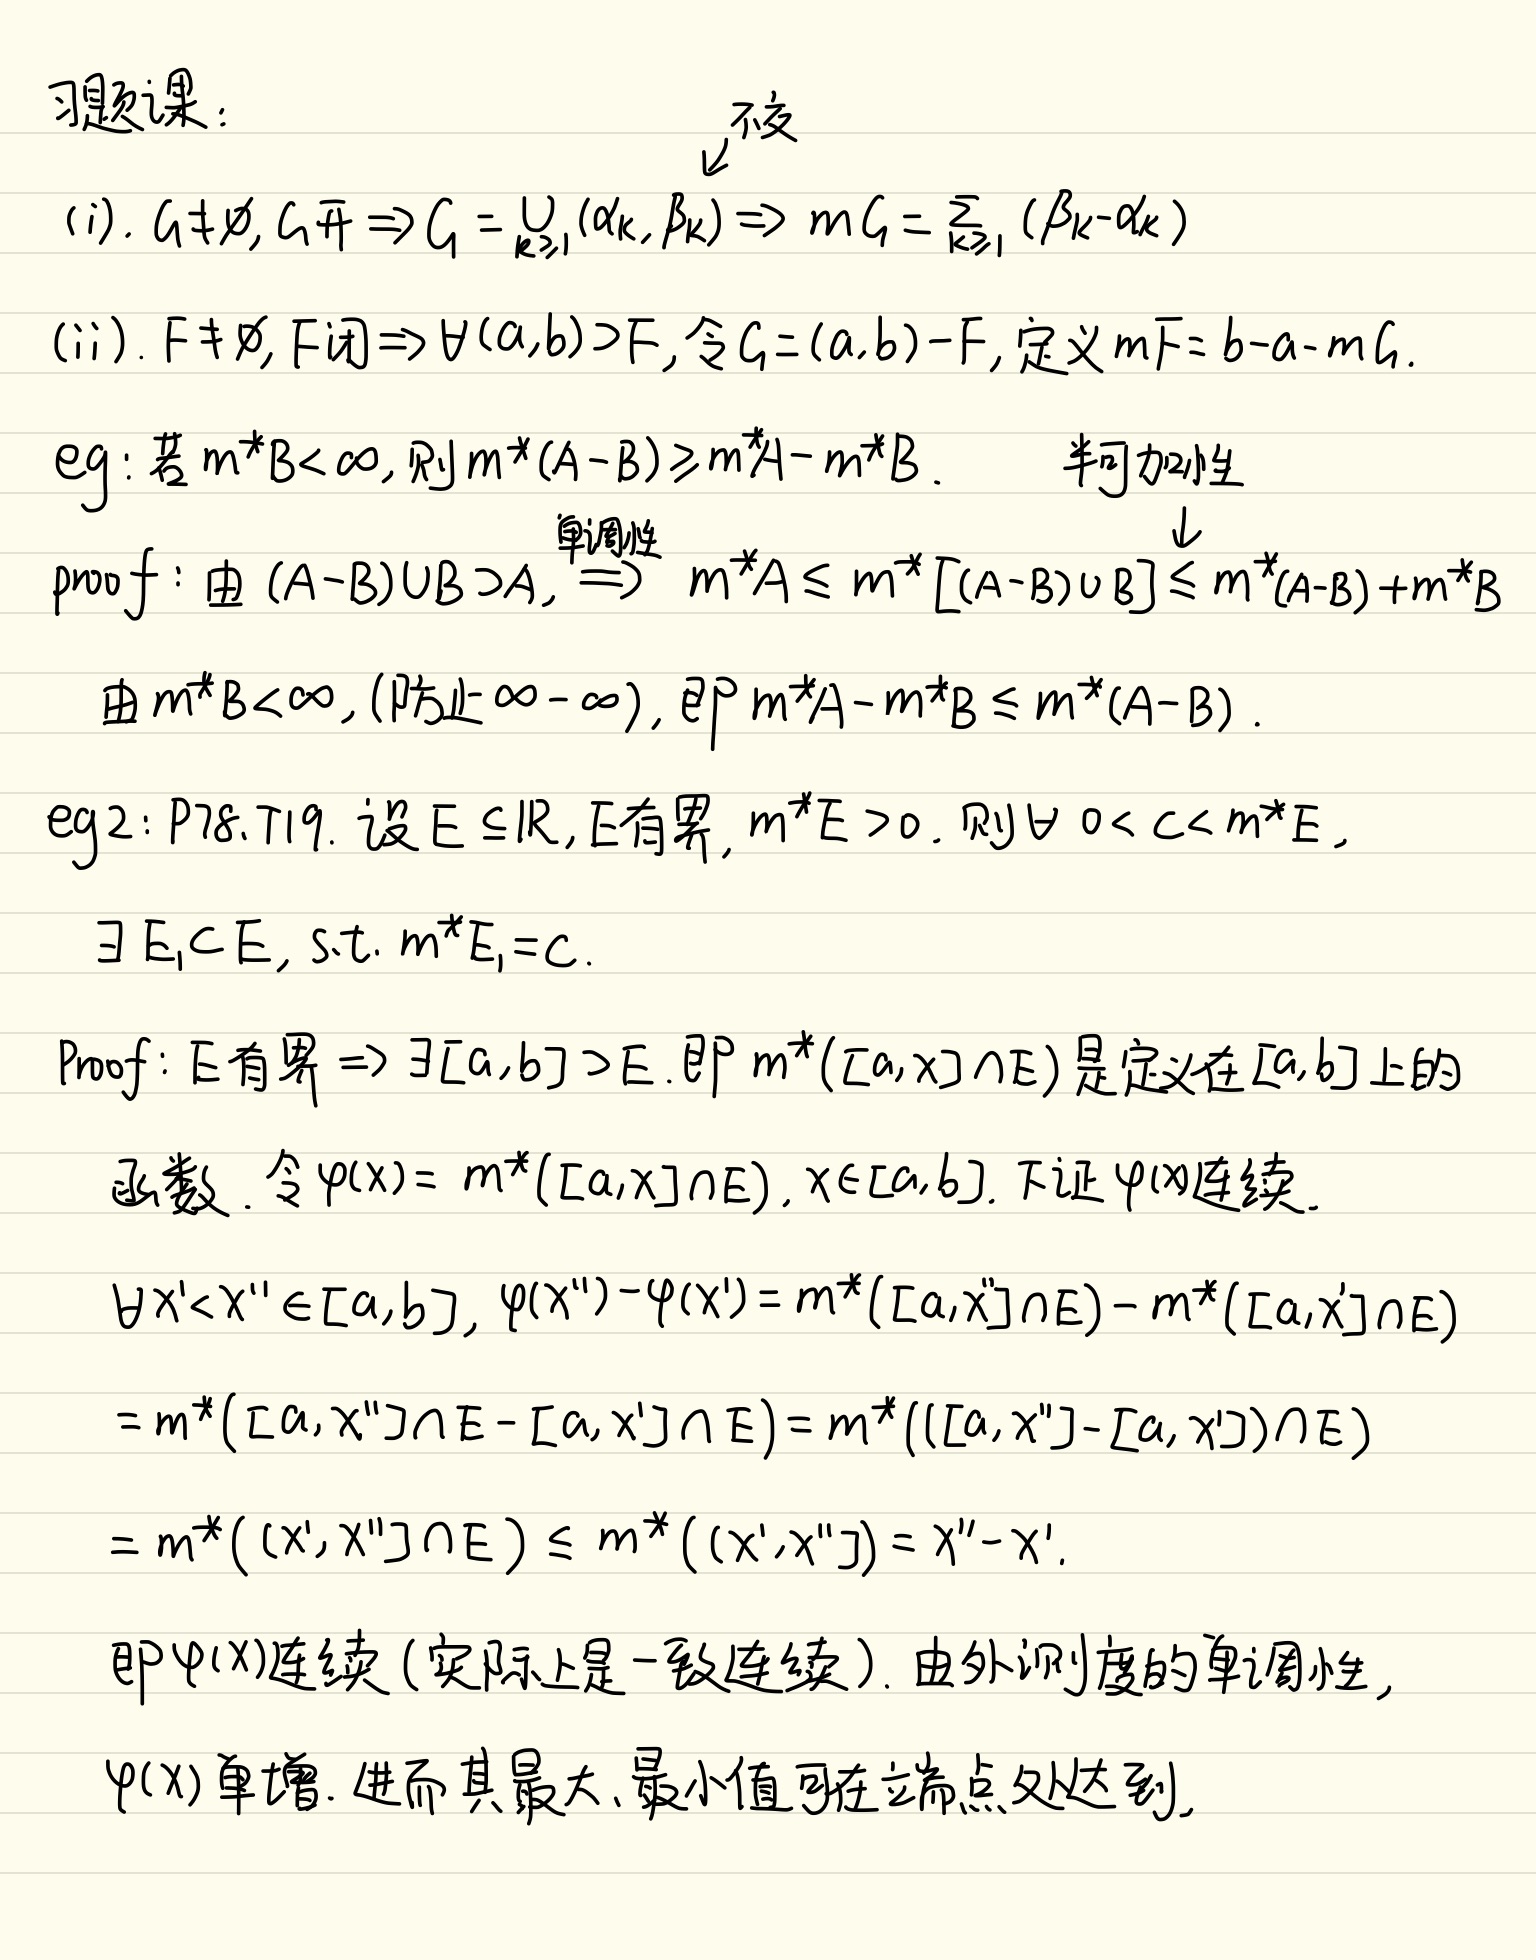 习题课:
不交
↙
(i). G≠∅, G开 ⇒ G = ∪_{k≥1} (α_k, β_k) ⇒ mG = Σ_{k≥1} (β_k-α_k)
(ii). F≠∅, F闭 ⇒ ∀(a,b)⊃F, 令G=(a,b)-F, 定义mF=b-a-mG.
eg: 若 m*B<∞, 则 m*(A-B)≥m*A-m*B.
半可加性
↓
单调性
proof: 由 (A-B)∪B⊃A, ⇒ m*A ≤ m*[(A-B)∪B] ≤ m*(A-B)+m*B
由 m*B<∞, (防止∞-∞), 即 m*A-m*B ≤ m*(A-B).
eg2: P78.T19. 设 E⊆ℝ, E有界, m*E>0. 则∀ 0<c<m*E,
∃E₁⊂E, s.t. m*E₁=c.
Proof: E有界 ⇒ ∃[a,b]⊃E. 即 m*([a,x]∩E)是定义在[a,b]上的
函数. 令φ(x)= m*([a,x]∩E), x∈[a,b]. 下证φ(x)连续.
∀x'<x''∈[a,b], φ(x'')-φ(x')=m*([a,x'']∩E)-m*([a,x']∩E)
=m*([a,x'']∩E-[a,x']∩E)=m*(([a,x'']-[a,x'])∩E)
=m*((x',x'']∩E) ≤ m*((x',x''])=x''-x'.
即φ(x)连续(实际上是一致连续). 由外测度的单调性,
φ(x)单增. 进而其最大、最小值可在端点处达到,